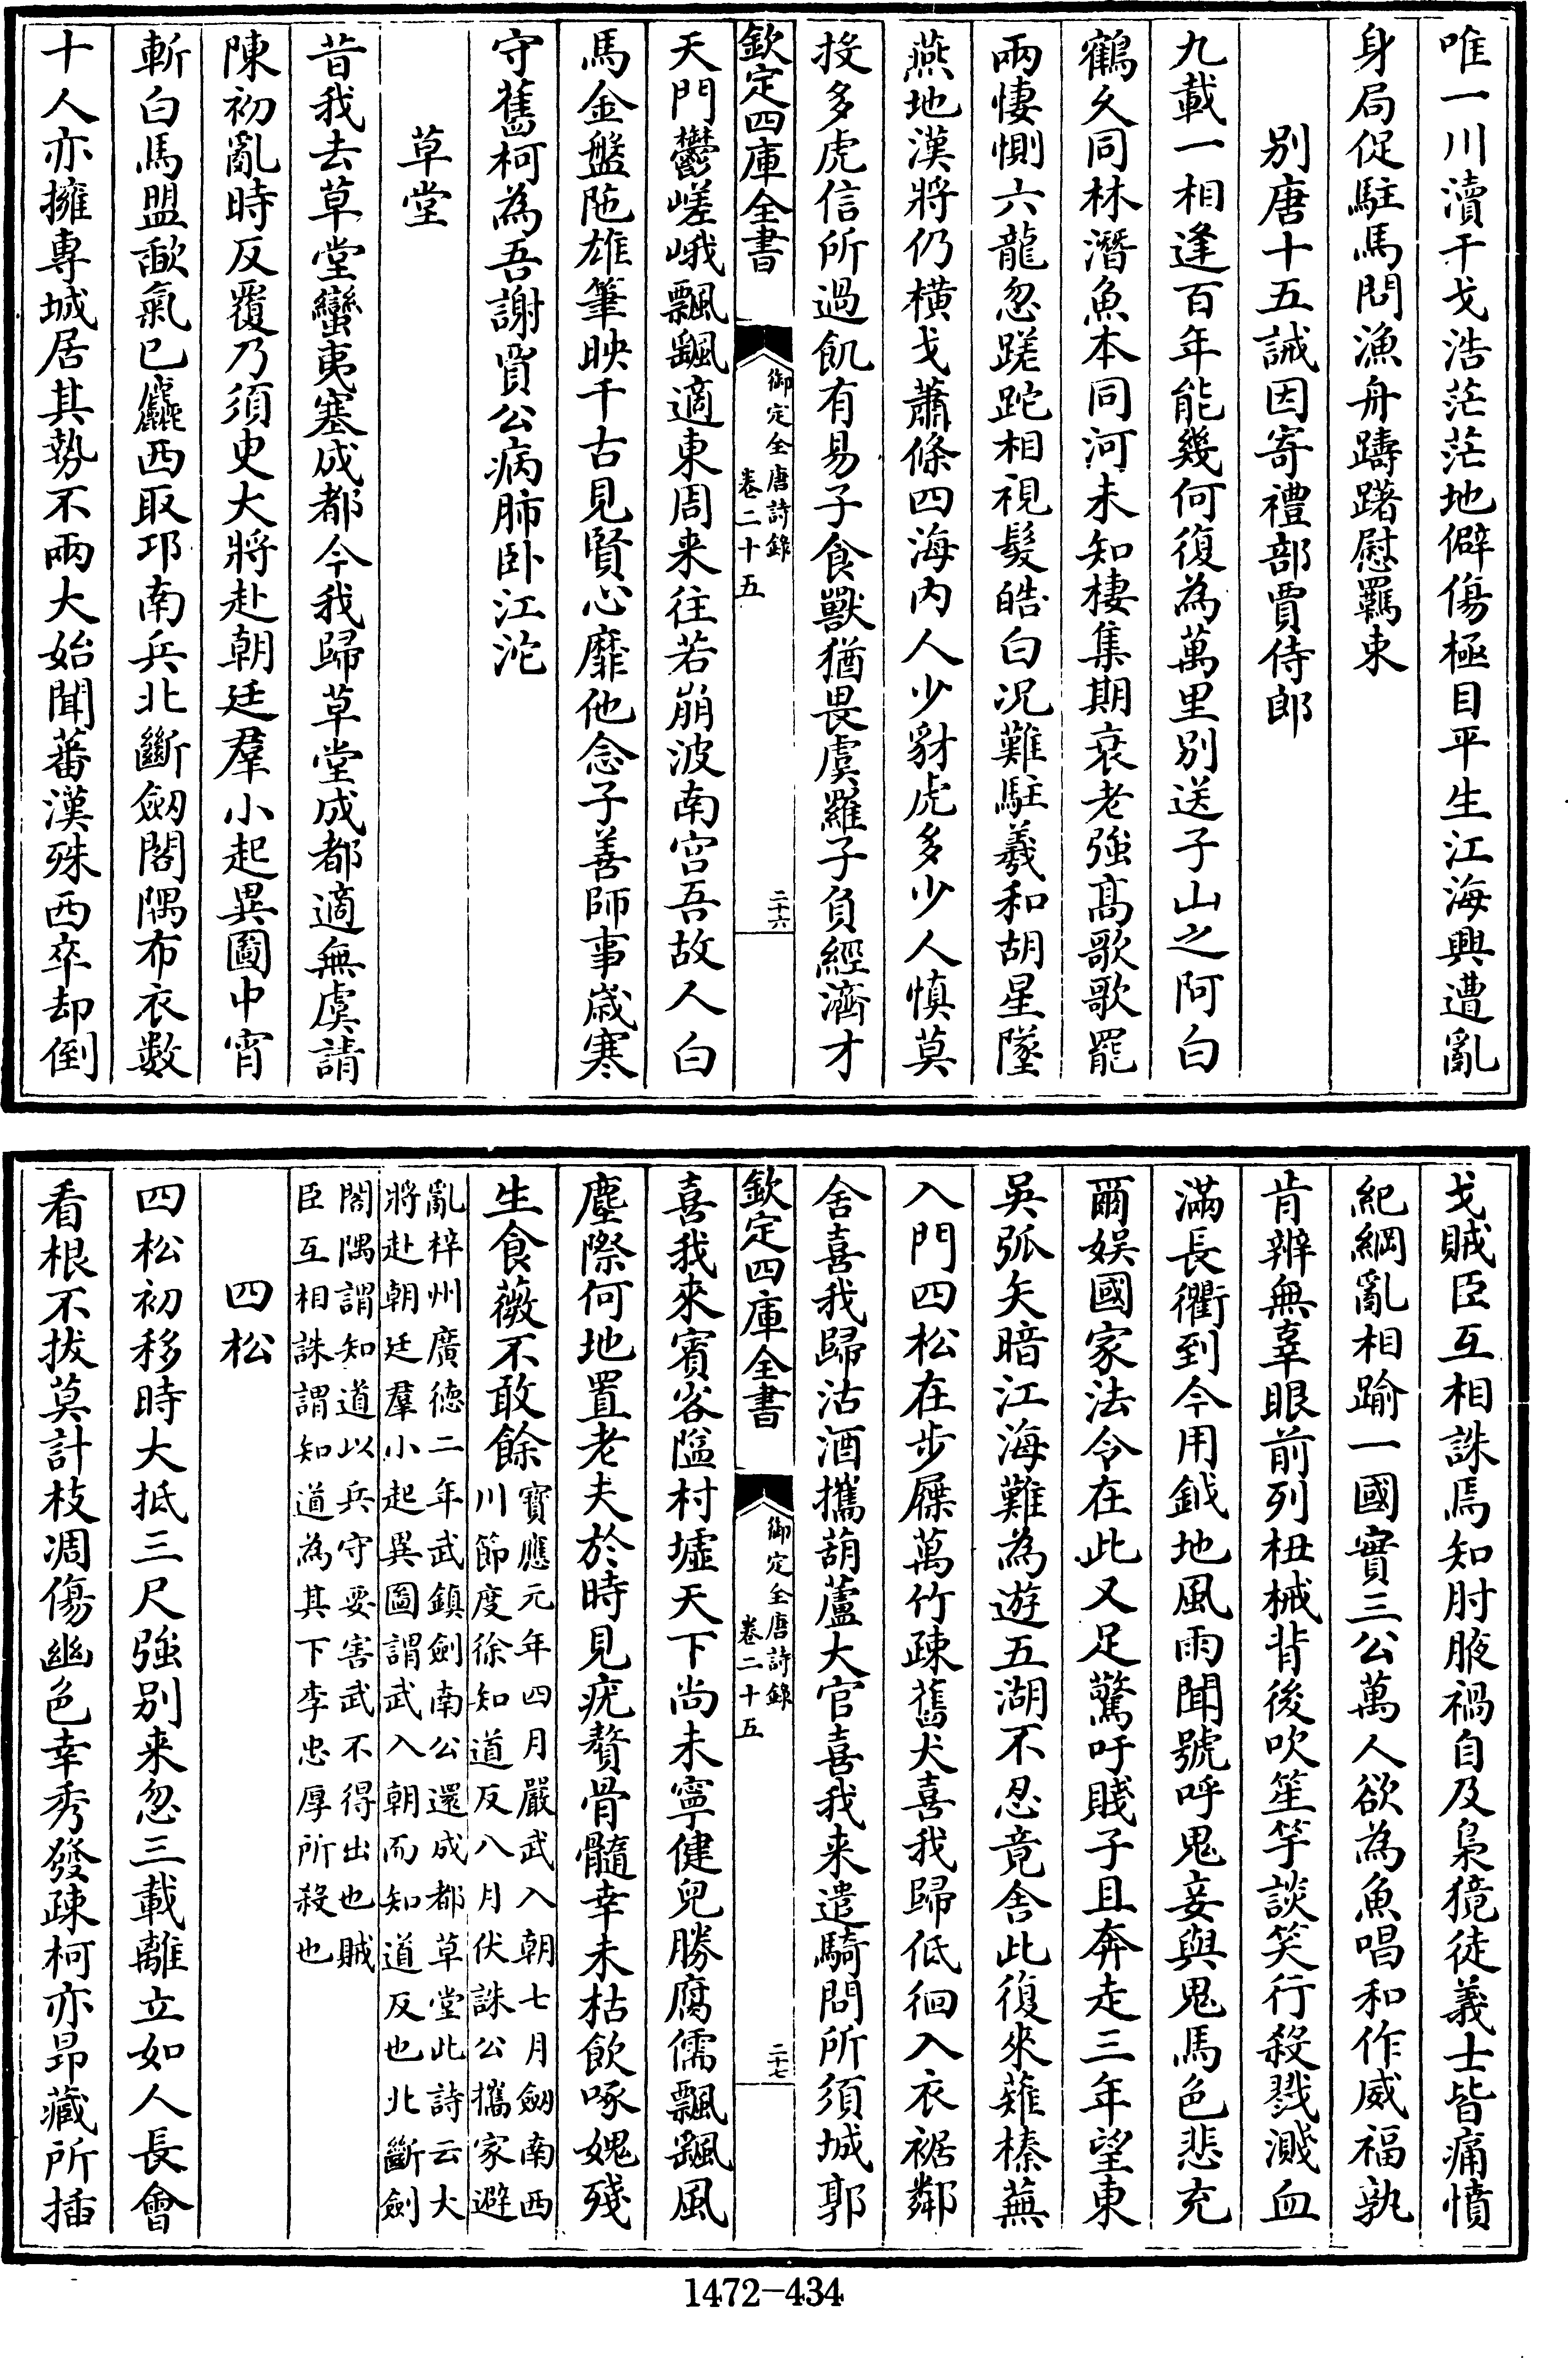 唯一川瀆干戈浩茫茫地僻傷極目平生江海興遭亂
身局促駐馬問漁舟躊躇慰羈束
别唐十五誡因寄禮部賈侍郎
九載一相逢百年能幾何復為萬里别送子山之阿白
鶴久同林潛魚本同河未知棲集期衰老強髙歌歌罷
兩悽惻六龍忽蹉跎相視髮皓白况難駐羲和胡星墜
燕地漢將仍橫戈蕭條四海内人少豺虎多少人慎莫
投多虎信所過飢有易子食獸猶畏虞羅子負經濟才
欽定四庫全書
御定全唐詩錄
卷二十五
二十六
天門鬱嵯峨飄飖適東周来往若崩波南宫吾故人白
馬金盤陁雄筆映千古見賢心靡他念子善師事歲寒
守舊柯為吾謝賈公病肺卧江沱
草堂
昔我去草堂蠻夷塞成都今我歸草堂成都適無虞請
陳初亂時反覆乃須臾大將赴朝廷羣小起異圖中宵
斬白馬盟歃氣已麤西取邛南兵北斷劎閣隅布衣数
十人亦擁專城居其勢不兩大始聞蕃漢殊西卒却倒
戈賊臣互相誅焉知肘腋禍自及梟獍徒義士皆痛憤
紀綱亂相踰一國實三公萬人欲為魚唱和作威福孰
肯辨無辜眼前列杻械背後吹笙竽談笑行殺戮濺血
滿長衢到今用鉞地風雨聞號呼鬼妾與鬼馬色悲充
爾娱國家法令在此又足驚吁賤子且奔走三年望東
吳弧矢暗江海難為遊五湖不忍竟舍此復來薙榛蕪
入門四松在步屧萬竹疎舊犬喜我歸低徊入衣裾鄰
舍喜我歸沽酒攜葫蘆大官喜我来遣騎問所須城郭
欽定四庫全書
御定全唐詩錄
卷二十五
二十七
喜我來賓客隘村墟天下尚未寧健兒勝腐儒飄飖風
塵際何地置老夫於時見疣贅骨髓幸未枯飲啄媿殘
生食薇不敢餘
寳應元年四月嚴武入朝七月劎南西
川節度徐知道反八月伏誅公攜家避
亂梓州廣徳二年武鎮劍南公還成都草堂此詩云大
將赴朝廷羣小起異圖謂武入朝而知道反也北斷劍
閣隅謂知道以兵守要害武不得出也賊
臣互相誅謂知道為其下李忠厚所殺也
四松
四松初移時大抵三尺強别来忽三載離立如人長會
看根不拔莫計枝凋傷幽色幸秀發疎柯亦昂藏所插
1472-434